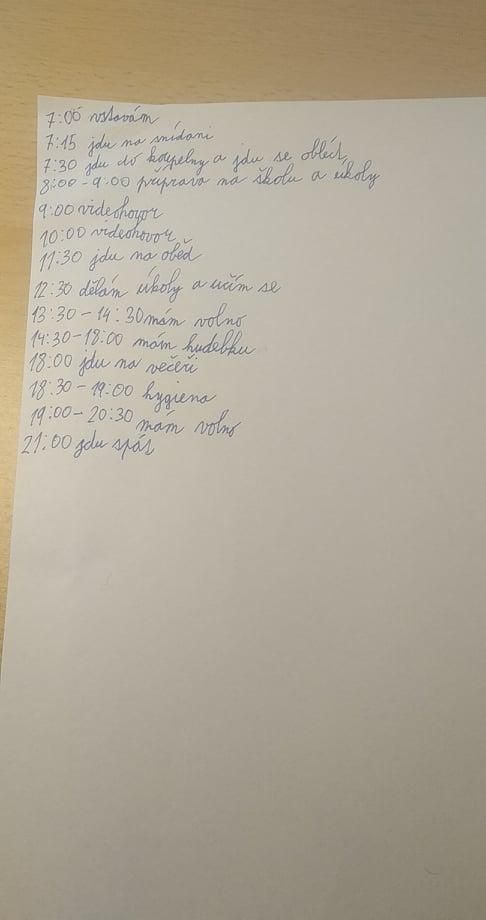 7:00 vstávám
7:15 jdu na snídani
7:30 jdu do koupelny a jdu se obléct
8:00-9:00 příprava na školu a úkoly
9:00 videohovor
10:00 videohovor
11:30 jdu na oběd
12:30 dělám úkoly a učím se
13:30-14:30 mám volno
14:30-18:00 mám hudebku
18:00 jdu na večeři
18:30-19:00 hygiena
19:00-20:30 mám volno
21:00 jdu spát